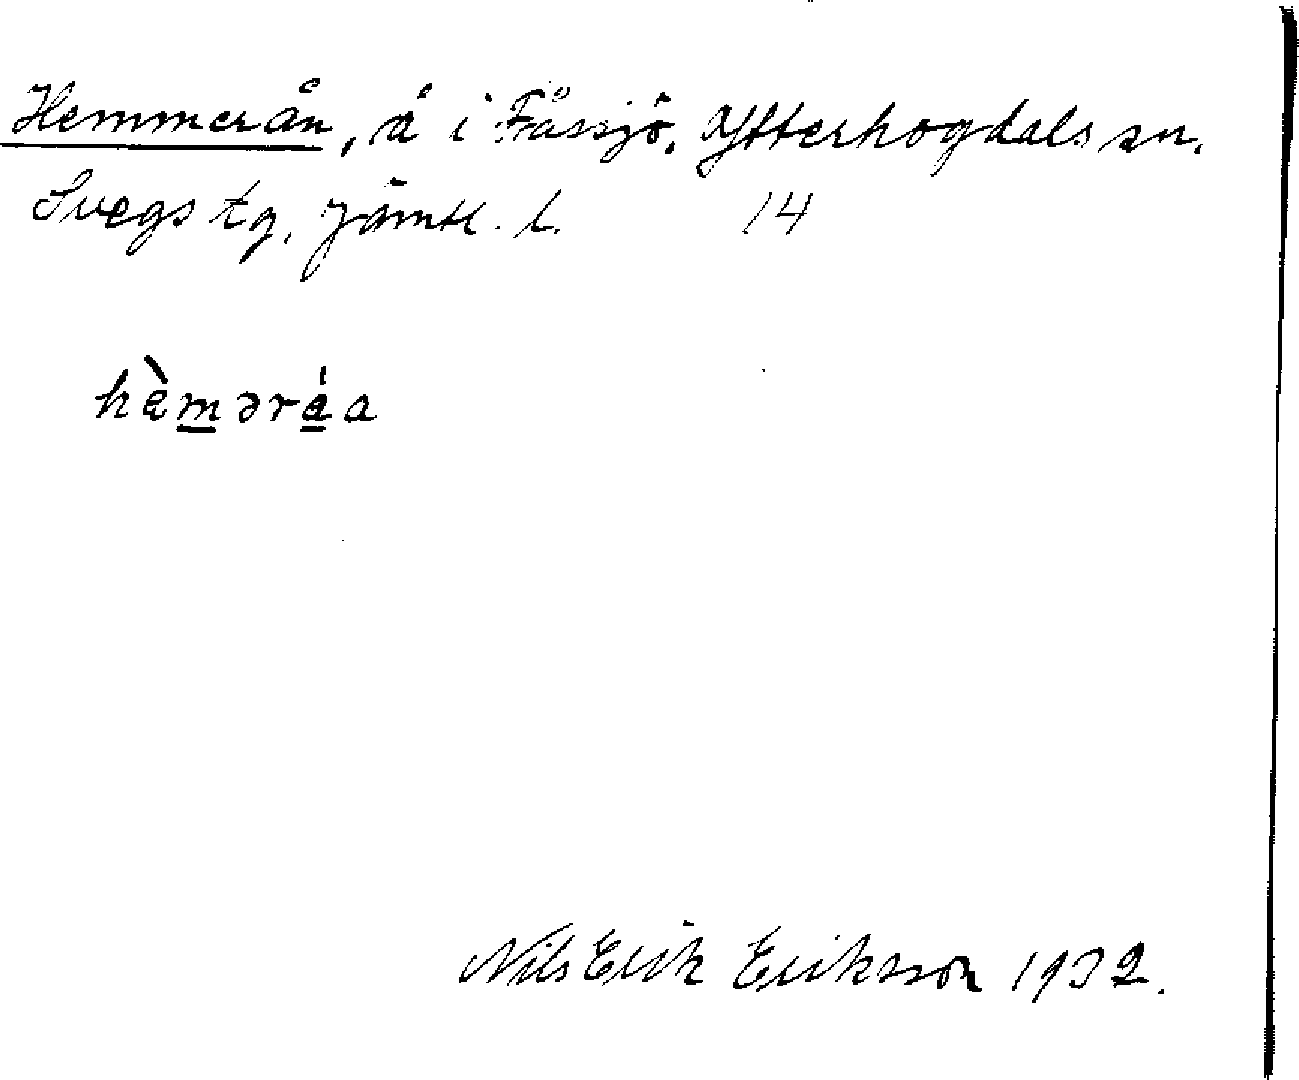 Hemmerån, å i Fåssjö, Ytterhogdals sn.
Svegs tg, Jämtl. l. 14
hèməráa
Nils Erik Eriksson 1932.